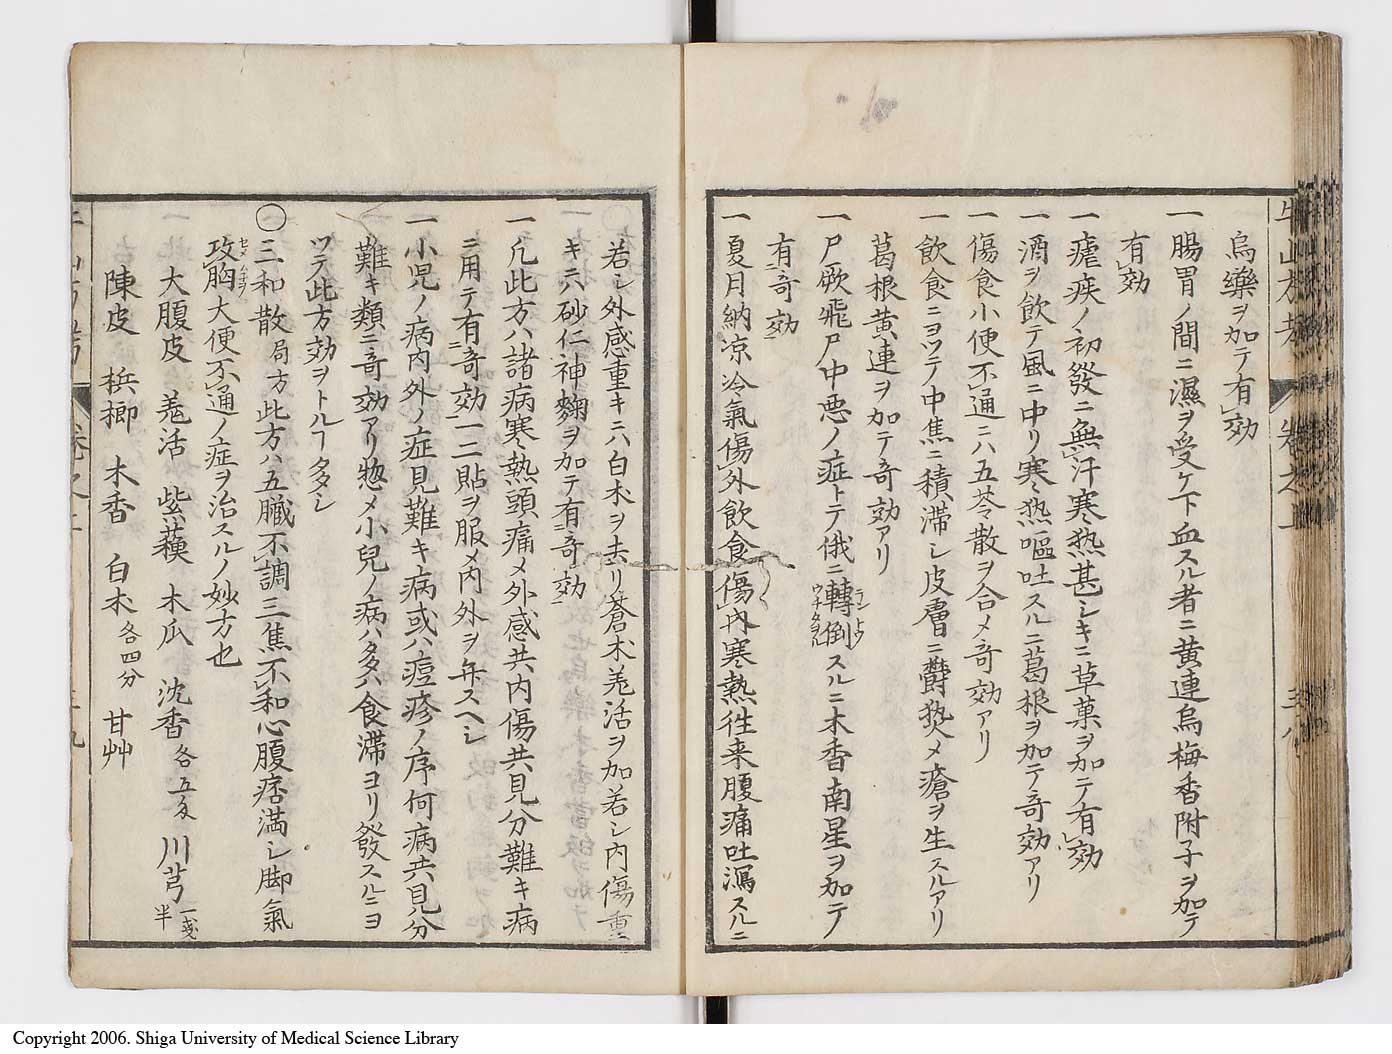 烏藥ヲ加テ有効
一腸胃ノ間ニ濕ヲ受ケ下血スル者ニ黄連烏梅香附子ヲ加テ
有効
一瘧疾ノ初發ニ無汗寒熱甚シキニ草菓ヲ加テ有効
一酒ヲ飲テ風ニ中リ寒熱嘔吐スルニ葛根ヲ加テ奇効アリ
一傷食小便不通ニハ五苓散ヲ合メ奇効アリ
一飲食ニヨツテ中焦ニ積滞シ皮膚ニ欝𤍠メ瘡ヲ生スルアリ
葛根黄連ヲ加テ奇効アリ
一尸厥飛尸中悪ノ症トテ俄ニ轉倒スルニ木香南星ヲ加テ
有奇効
一夏月納凉冷氣傷外飲食傷内寒熱徃来腹痛吐瀉スルニ
若シ外感重キニハ白朮ヲ去リ蒼朮羗活ヲ加若シ内傷重
キニハ砂仁神麹ヲ加テ有奇効
一凡此方ハ諸病寒熱頭痛メ外感共内傷共見分難キ病
ニ用テ有奇効一二貼ヲ服メ内外ヲ弁スヘシ
一小児ノ病内外ノ症見難キ病或ハ痘疹ノ序何病共見分
難キ類ニ奇効アリ惣メ小兒ノ病ハ多ハ食滞ヨリ發スルニヨ
ツテ此方効ヲトルヿ多シ
○三和散局方此方ハ五臓不調三焦不和心腹痞満シ脚氣
攻胸大便不通ノ症ヲ治スルノ妙方也
大腹皮 羗活 紫蘓 木瓜 沈香各五分 川芎一戔半
陳皮 梹榔 木香 白朮各四分 甘艸
Copyright 2006. Shiga University of Medical Science Library